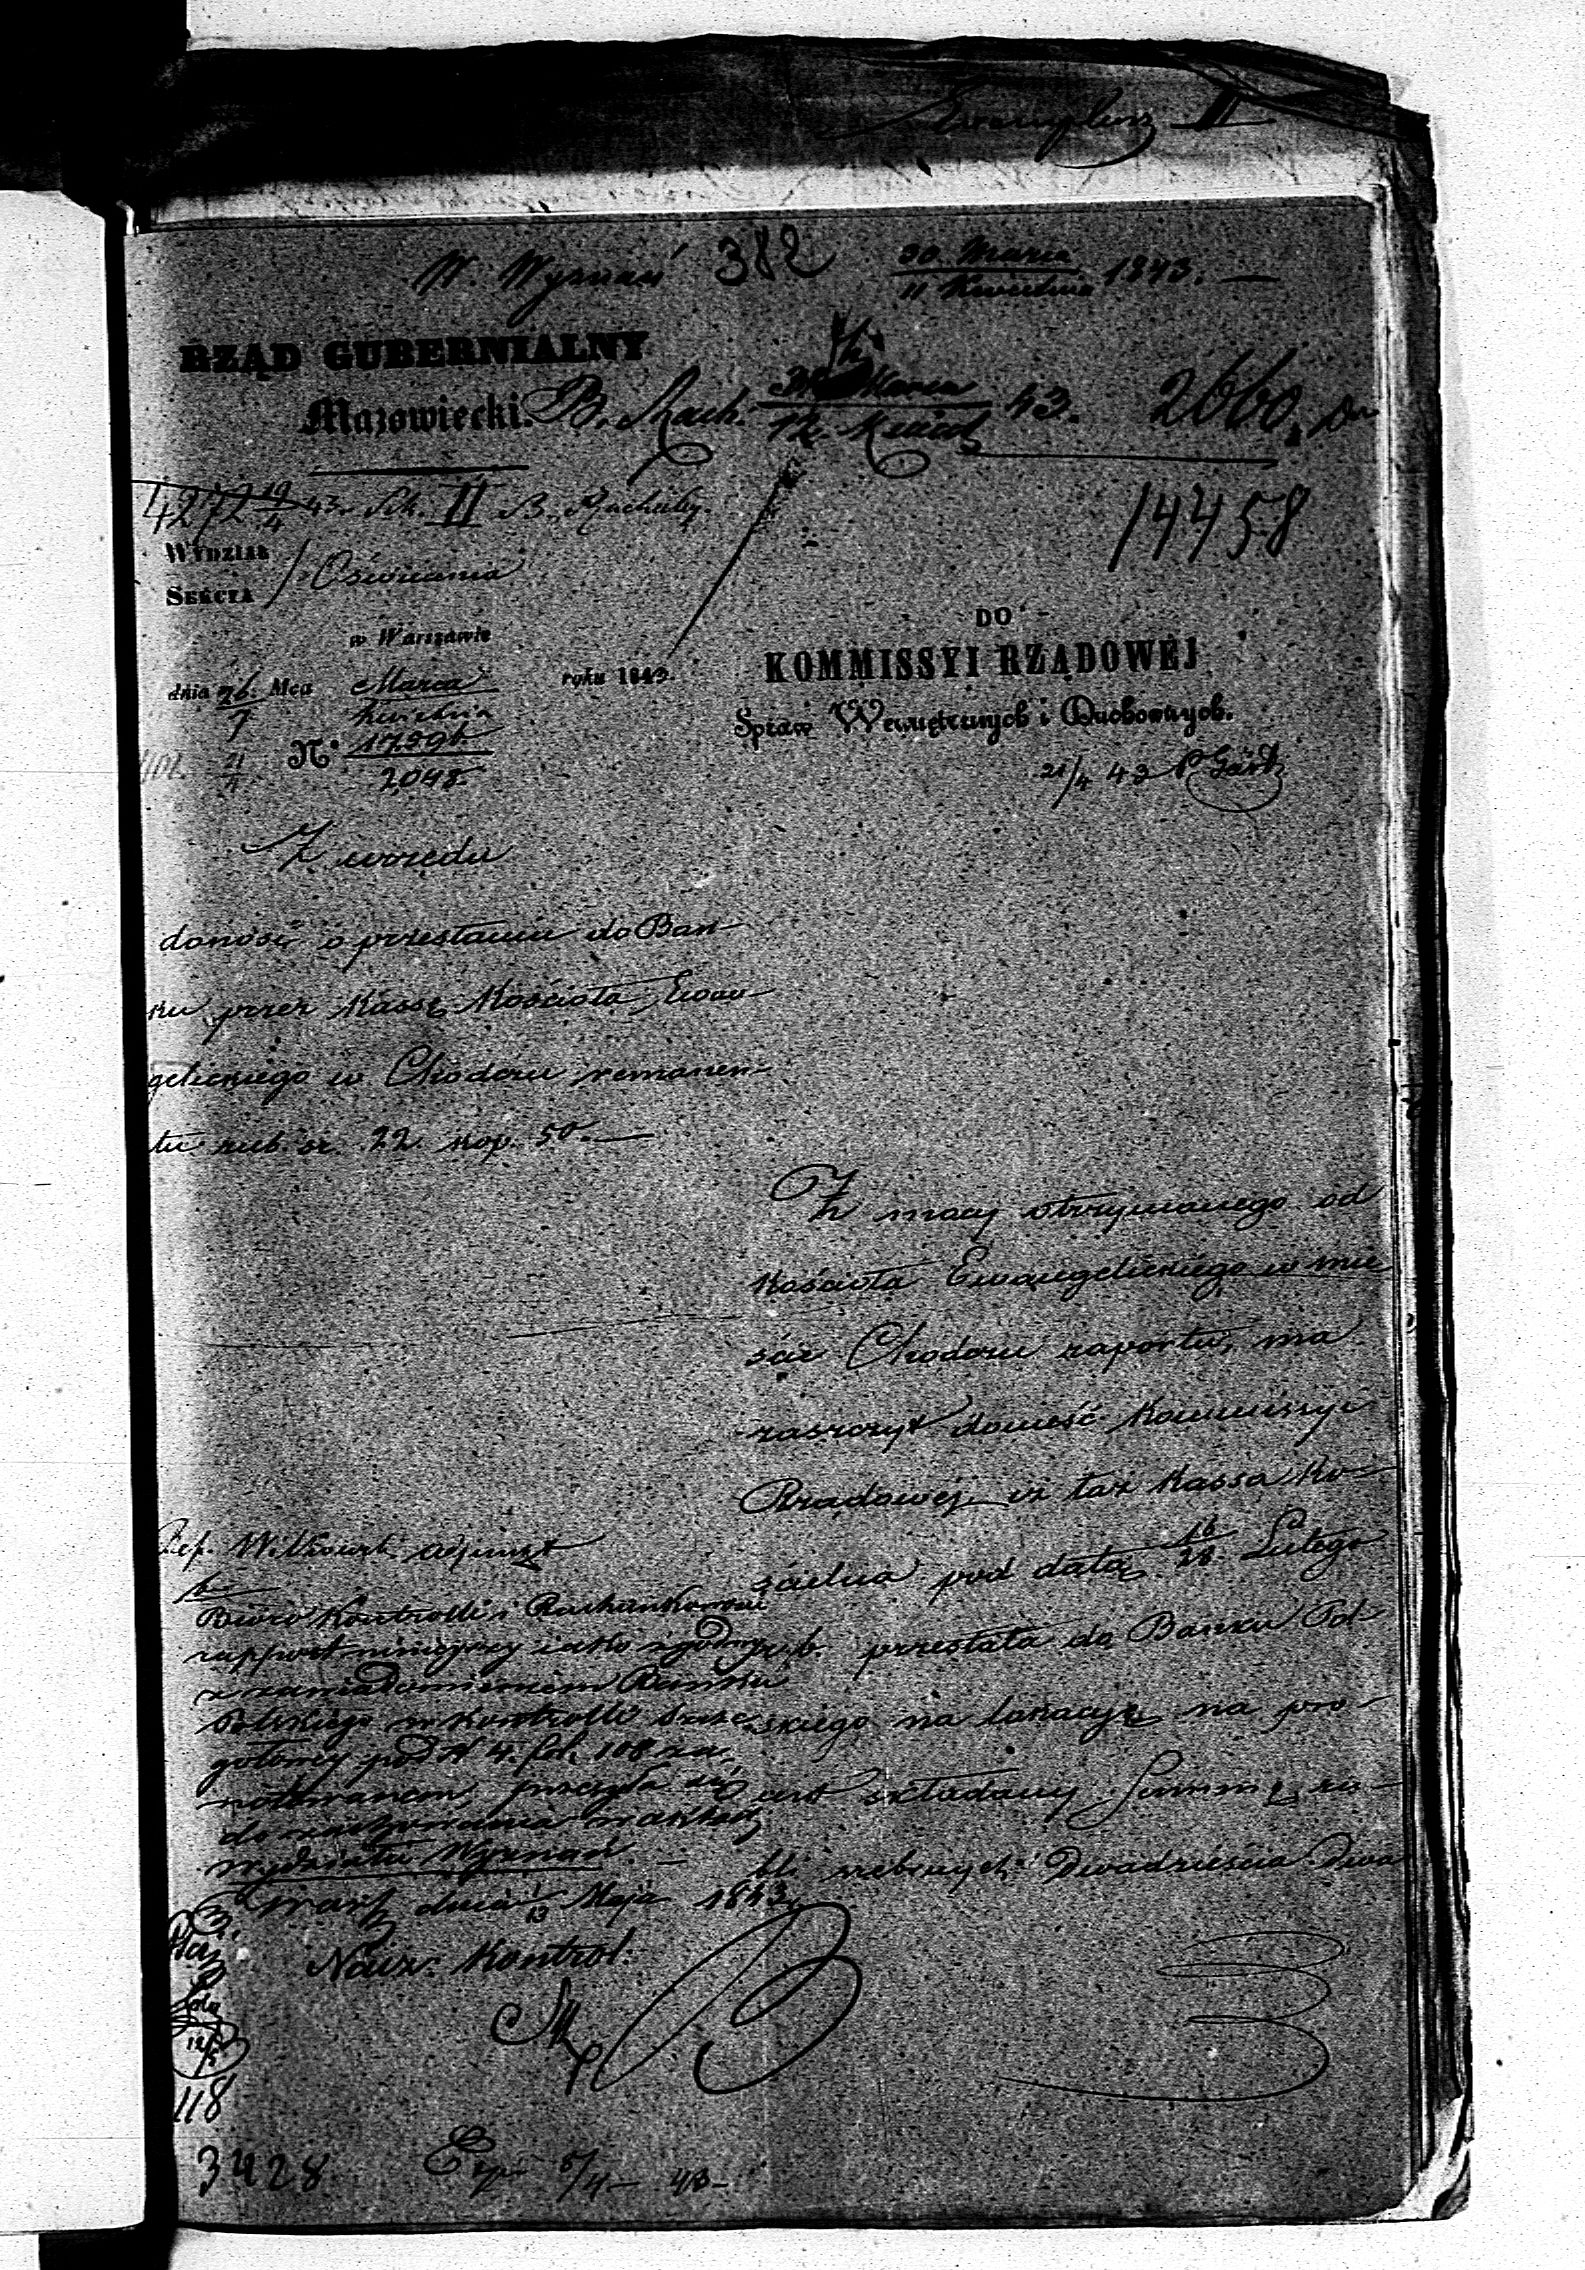 Exemplarz II
W. Wyznań 382 30 Marca / 11 Kwietnia 1843.
RZĄD GUBERNIALNY
Mazowiecki.
B. Rach. Marca / 12 43. 2660.
4272 19/4 43. Sek. II B. Rachuby.
14458
WYDZIAŁ
SEKCYA
Oświecenia
w Warszawie
dnia 26/7 Mca Marca / Kwietnia roku 1843.
N° 17596 / 2048
DO
KOMMISSYI RZĄDOWEJ
Spraw Wewnętrznych i Duchownych.
21/4 43
Z urzędu
donosi o przesłaniu do Ban-
ku przez Kassę Kościoła Ewan-
gelickiego w Chodczu remanen-
tu rub. sr. 22 kop. 50.
Z mocy otrzymanego od
Kościoła Ewangelickiego w mie
ście Chodczu raportu, ma
zaszczyt donieść Kommissyi
Rządowej iż taż Kassa Ko-
ścielna pod datą 16/28 Lutego
r. b. przesłała do Banku Pol-
skiego na lokacyę na pro-
cent składany Summę ru-
bli srebrnych Dwadzieścia dwa
Ref. Witkowski Adjunkt
Biuro Kontrolli i Rachunkowości
rapport niniejszy jako zgodny
z zawiadomieniem Banku
Polskiego w Kontrolli Szcze-
gółowey pod N 4. fol. 108 za
notowanem, przesyła się
do zachowania w aktach
Wydziału Wyznań. —
Warsz. dnia 1/13 Maja 1843.
Nacz. Kontrol.
12/5
118
3428.
Exp. 5/4 43